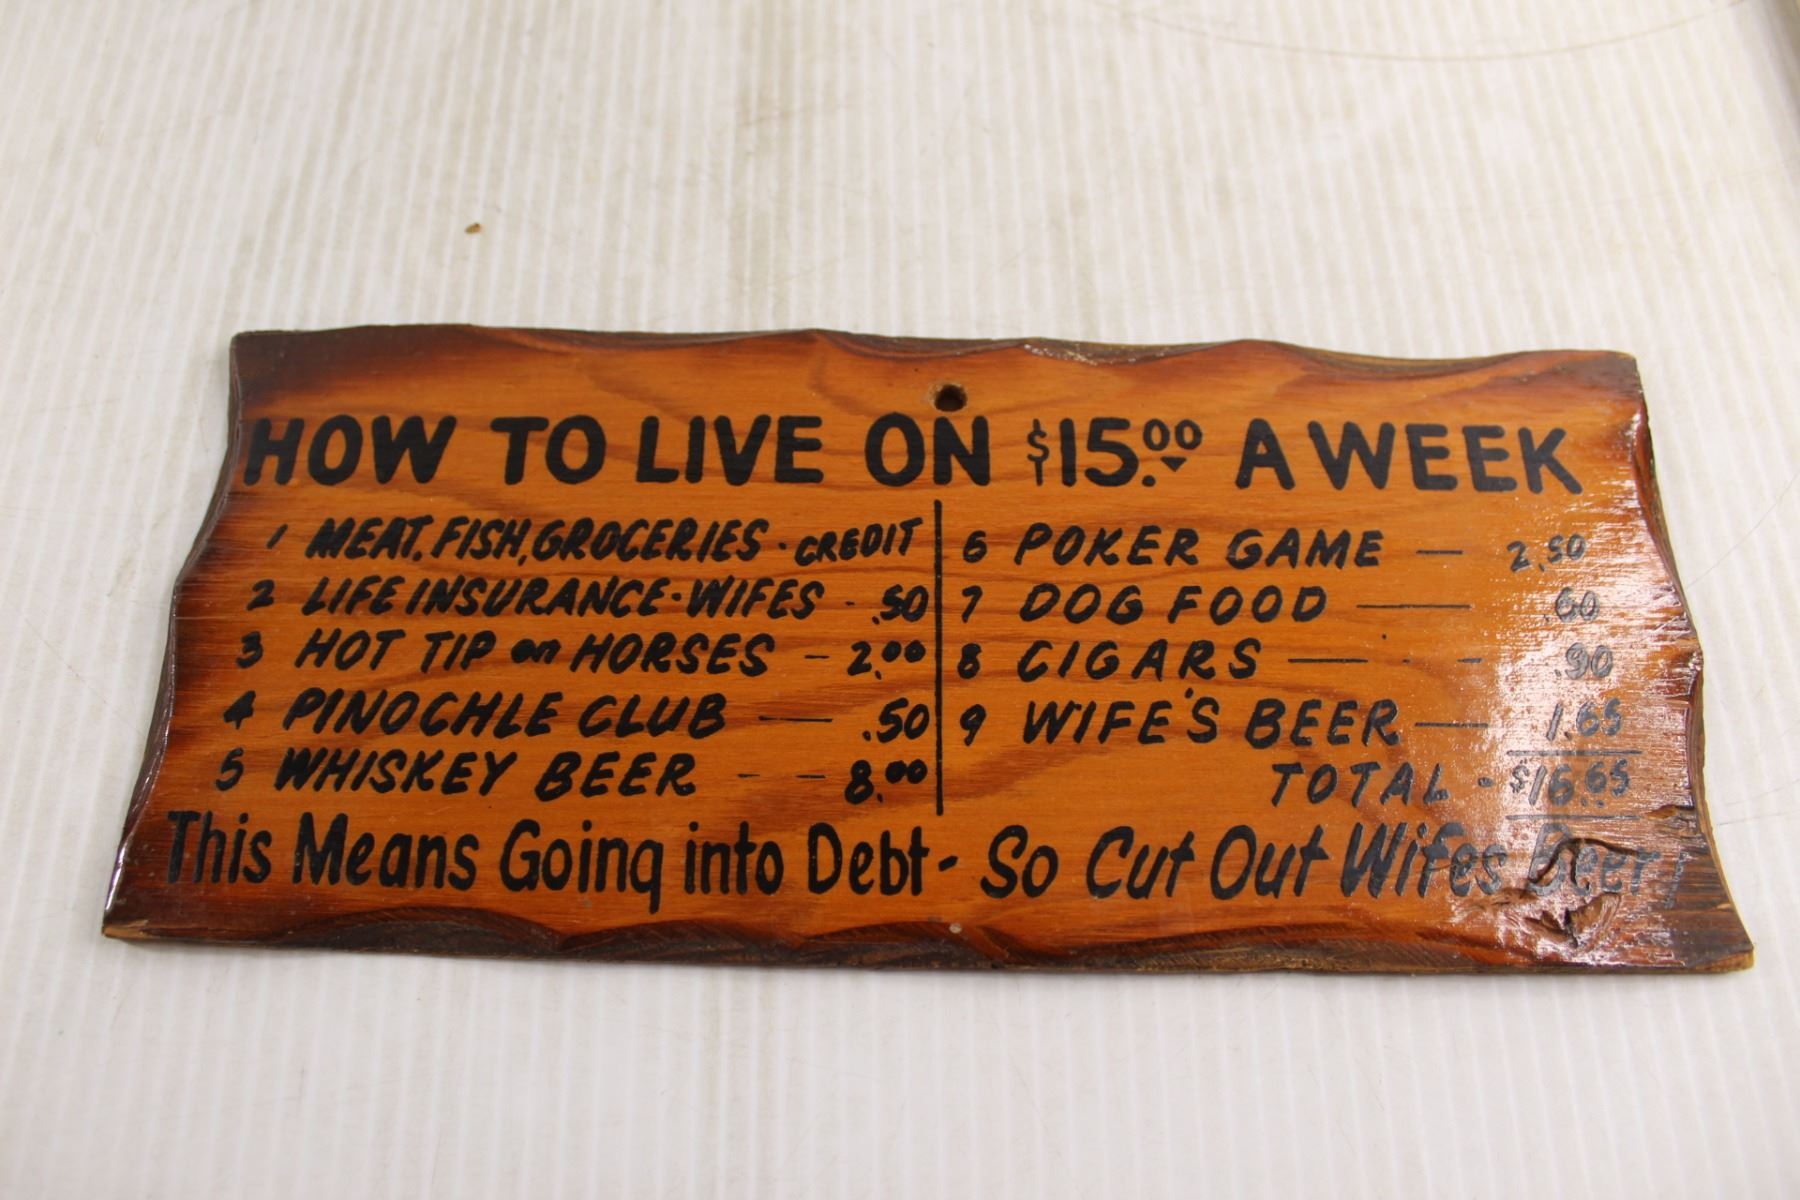 HOW TO LIVE ON $15.00 A WEEK
1 MEAT, FISH, GROCERIES - CREDIT
2 LIFE INSURANCE - WIFES - .50
3 HOT TIP on HORSES - 2.00
4 PINOCHLE CLUB — .50
5 WHISKEY BEER - - 8.00
6 POKER GAME — 2.50
7 DOG FOOD — .60
8 CIGARS — - - .90
9 WIFE'S BEER — 1.65
TOTAL - $16.65
This Means Going into Debt - So Cut Out Wifes Beer